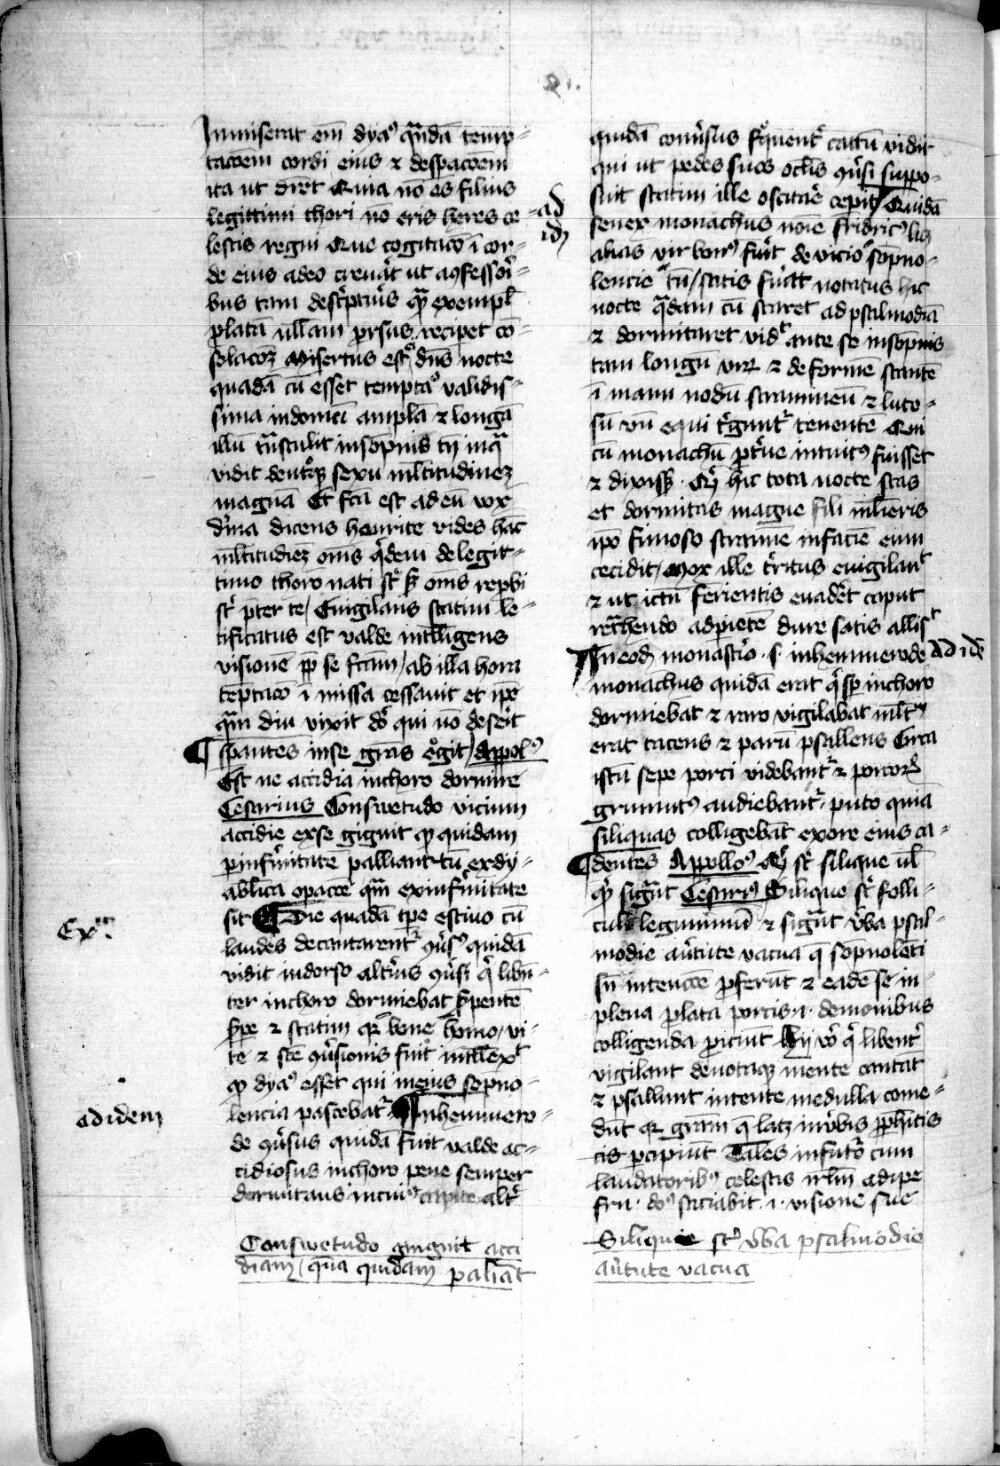 Immiserat em̄ dyaꝰ quādā temp-
tac̄oem cordi eius ⁊ despac̄oem
ita ut diret Quia nō es filius
legittimi thori nō eris heres ce-
lestis regni Que cogitac̄o ī cor-
de eius adeo creuat ut ꝯfessori-
bus tam descptiuis qꝫ exempl̄
plata ullam prsus recipet cō-
solac̄oꝫ Misertus est dn̄s nocte
quadā cū esset temptaꝰ validis-
sima in domū amplā ⁊ longā
illū trāstulit in sōpnis in qua
vidit vtriusqꝫ sexū ml̄titudinez
magnā Et fc̄a est ad eū vox
diuina dicens henrice vides hāc
ml̄titudiez om̄s qidem de legit-
timo thoro nati st̄ sꝫ om̄s repbi
st̄ preter te / Euigilans statim le-
tificatus est valde intelligens
visionē ꝓp̄ se fc̄am / ab illa hora
tēptac̄o ī missa cessauit et ip̄e
qm̄ diu vixit dō qui nō deserit
spantes in se gr̄as egit / Appolꝰ
Est ne accidia in choro dormire
Cesarius Conswetudo vicium
accidie ex se gignit qꝫ quidam
p infirmitate palliant tū ex dy-
abl̄ica opac̄oe qm̄ ex infirmitate
sit ¶ Die quadā tp̄e estiuo cū
laudes decantarentr̄ ꝯusꝰ quidā
vidit in dorso altius ꝯusi q̄ libn̄-
ter in choro dormiebat spentē
spe ⁊ statim qr̄ bone homo vi-
te ⁊ scē ꝯusionis fuit intellexit
qꝫ dyaꝰ esset qui in eius sopno-
lencia pascebatr̄ ¶ In hemmero-
de ꝯusus quidā fuit valde ac-
cidiosus in choro pene semper
dormitans in cuiꝰ capite altr̄
Conswetudo gingnit acci
diam / quā quidam paliāt
Exm̄
ad idem
quidā conūsus fquentr̄ cattū vidit
qui ut pedes suos oclis ꝯusi suppo-
suit statim ille oscitare cepit / Quidā
senex monachus noīe fridricꝰ lꝫ
alias vir bonꝰ fuit de vicio sōpno-
lencie tn̄ / satis fuat notatus hic
nocte q̄dam cū staret ad psalmodiā
⁊ dormitaret vidt ante se in sōpnis
tam longū virū ⁊ deformē stantē
ī manu nodū stramineū ⁊ luto-
sū vn̄ equi tgunt̄ tenentē Qui
cū monachū ptue intuitꝰ fuisset
⁊ dixissꝫ Cur hic tota nocte stas
et dormitas magne fili mlieris
ip̄o fimoso stramine in faciē eum
cecidit / mox ille tritus euigilant
⁊ ut ictū ferientis euadet caput
retrahendo ad pietē dure satis allisit
¶ In eodꝫ monastio .s. in hemmerode
monachus quidā erat q̄ sp in choro
dormiebat ⁊ raro vigilabat mltū
erat tacens ⁊ parū psallens Circa
istū sepe porci videbantr̄ ⁊ porcoꝝ
grunitꝰ audiebantr̄ puto quia
siliquas colligebāt ex ore eius ca-
dentes Appolloꝰ Qꝫ st̄ silique ul̄
qꝫ sigt Cesariꝰ Silique st̄ folli-
culi leguminū ⁊ sigt uba psal-
modie aūtute vacua q̄ sōpnolēti
sn̄ intenc̄oe pferūt ⁊ eadē se in
plena plata porcis .i. demonibus
colligenda piciūt hij vō q̄ libentr̄
vigilant deuotaqꝫ mente cantāt
⁊ psallunt intente medulla come-
dūt qr̄ gr̄am q̄ latꝫ in vbis pphīcis
cis pcipiūt Tales in futo cum
laudatoribꝰ celestis irlm̄ adipe
frū doꝰ saciabit .i. visione sue
Silique st̄ vba psalmodie
aūtute vacua
ad
idꝫ
Ad idē